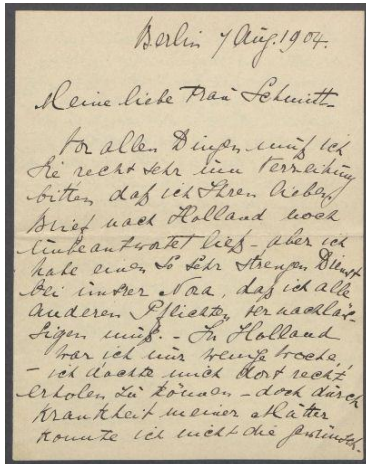 Berlin 7 Aug. 1904.
Meine liebe Frau Schmitt-
Vor allen Dingen muß ich
Sie recht sehr um Verzeihung
bitten daß ich Ihren lieben
Brief nach Holland noch
unbeantwortet ließ - aber ich
habe einen so sehr strengen Dienst
bei unsrer Nora, daß ich alle
anderen Pflichten vernachläs-
sigen muß. - In Holland
war ich nur wenige Woche,
- ich dachte mich dort recht
erholen zu können - doch durch
Krankheit meiner Mutter
konnte ich nicht die gewünsch-